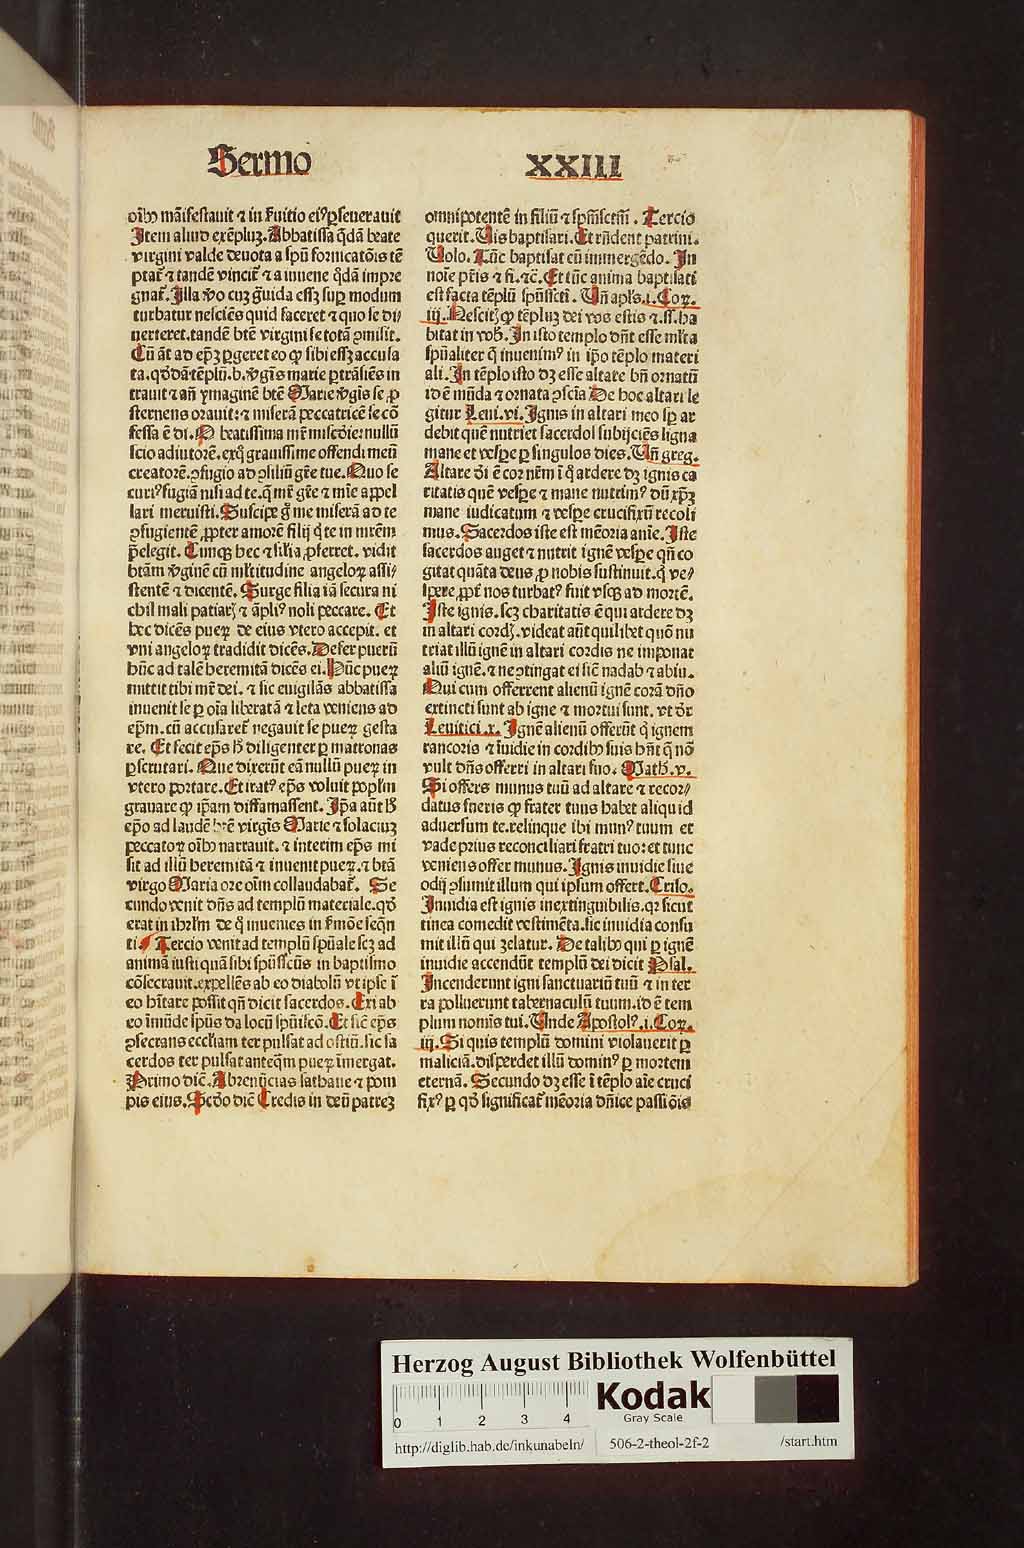 Sermo XXIII
oĩbꝫ mãifestauit ⁊ in ẜuitio eiꝰ ꝑseuerauit
Item aliud exẽpluꝫ. Abbatissa q̃dã beate
virgini valde deuota a spũ fornicatõis tẽ
ptat᷑ ⁊ tandẽ vincit᷑ ⁊ a iuuene q̃dã impre
gnat᷑. Illa ꝟo cuꝫ g̃uida essꝫ suꝑ modum
turbatur nesciẽs quid faceret ⁊ quo se di⸗
uerteret. tandẽ btẽ virgini se totã ꝯmisit.
Cũ aũt ad ep̃ꝫ ꝑgeret eo ꝙ sibi essꝫ accusa
ta. qd̃dã tẽplũ. b. ꝟgĩs marie ꝑtrãsiẽs in
trauit ⁊ añ ymaginẽ btẽ Marie ꝟgĩs se ꝓ
sternens orauit: ⁊ miserã peccatricẽ se cõ
fessa ẽ di. O beatissima mr̃ miscd̃ie: nullũ
scio adiutorẽ. exq̃ grauissime offendi meũ
creatorẽ. ꝯfugio ad ꝯsiliũ gr̃e tue. Quo se
curiꝰ fugiã nisi ad te. q̃ mr̃ gr̃e ⁊ mĩe appel
lari meruisti. Suscipe g̃ me miserã ad te
ꝯfugientẽ ꝓpter amorẽ filij q̃ te in mr̃em
p̃elegit. Cunqꝫ hec ⁊ sĩlia ꝓferret. vidit
btãm ꝟginẽ cũ ml̃titudine angeloꝝ assi⸗
stentẽ ⁊ dicentẽ. Surge filia iã secura ni
chil mali patiarꝭ ⁊ ãpliꝰ noli peccare. Et
hec dicẽs pueꝝ de eius vtero accepit. et
vni angeloꝝ tradidit dicẽs. Defer puerũ
hũc ad talẽ heremitã dicẽs ei. Hũc pueꝝ
mittit tibi mr̃ dei. ⁊ sic euigilãs abbatissa
inuenit se ꝑ oĩa liberatã ⁊ leta veniens ad
ep̃m. cũ accusaret᷑ negauit se pueꝝ gesta
re. Et fecit ep̃s hꝰ diligenter ꝑ matronas
ꝑscrutari. Que dixerũt eã nullũ pueꝝ in
vtero portare. Et iratꝰ ep̃s voluit popl̃m
grauare ꝙ ip̃am diffamassent. Ip̃a aũt hꝰ
ep̃o ad laudẽ btẽ virgĩs Marie ⁊ solaciuꝫ
peccatoꝝ oĩbꝫ narrauit. ⁊ interim ep̃s mi
sit ad illũ heremitã ⁊ inuenit pueꝝ. ⁊ btã
virgo Maria ore oĩm collaudabat᷑. Se
cundo venit dñs ad templũ materiale. qd̃
erat in ihrl̃m de q̃ inuenies in ẜmõe seq̃n
ti. Tercio venit ad templũ spũale scꝫ ad
animã iusti quã sibi spũssctũs in baptismo
cõsecrauit. expellẽs ab eo diabolũ vt ipse ĩ
eo hĩtare possit qñ dicit sacerdos. Exi ab
eo ĩmũde spũs da locũ spũiscõ. Et sic ep̃s
ꝯsecrans eccl̃iam ter pulsat ad ostiũ. sic sa
cerdos ter pulsat anteq̃m pueꝝ ĩmergat.
Primo dic̃. Abrenũcias sathane ⁊ pom
pis eius. Scd̃o dic̃ Credis in deũ patreꝫ
omnipotentẽ in filiũ ⁊ spm̃sctm̃. Tercio
querit. Uis baptisari. Et rñdent patrini.
Uolo. Tũc baptisat eũ immergẽdo. In
noĩe pr̃is ⁊ fi. ⁊c̃. Et tũc anima baptisati
est facta tẽplũ spũsscti. Uñ apl̃s. i. Coꝝ.
iij. Nescitꝭ ꝙ tẽpluꝫ dei vos estis ⁊ .ss. ha
bitat in vobꝭ. In isto templo dñt esse ml̃ta
spũaliter q̃ inuenimꝰ in ip̃o tẽplo materi
ali. In tẽplo isto dꝫ esse altare bñ ornatũ
id ẽ mũda ⁊ ornata ꝯsciẽtia De hoc altari le
gitur Leui. vi. Ignis in altari meo sꝑ ar
debit quẽ nutriet sacerdos subijciẽs ligna
mane et vesꝑe ꝑ singulos dies. Uñ greg.
Altare dĩ ẽ cor nr̃m ĩ q̃ ardere dꝫ ignis ca
ritatis quẽ vesꝑe ⁊ mane nutrimꝰ dũ xp̃ꝫ
mane iudicatum ⁊ vesꝑe crucifixũ recoli
mus. Sacerdos iste est mẽoria aĩe. Iste
sacerdos auget ⁊ nutrit ignẽ vesꝑe qñ co
gitat quãta deus ꝓ nobis sustinuit. q̃ ve⸗
spere ꝓpt᷑ nos turbatꝰ fuit vsqꝫ ad mortẽ.
Iste ignis. scꝫ charitatis ẽ qui ardere dꝫ
in altari cordꝭ. videat aũt quilibet quõ nu
triat illũ ignẽ in altari cordis ne imponat
aliũ ignẽ. ⁊ ne ꝯtingat ei sic̃ nadab ⁊ abiu.
Qui cum offerrent alienũ ignẽ corã dño
extincti sunt ab igne ⁊ mortui sunt. vt dr̃
Leuitici .x. Ignẽ alienũ offerũt q̃ ignem
rancoris ⁊ ĩuidie in cordibꝫ suis hñt q̃ nõ
vult dñs offerri in altari suo. Math. v.
Si offers munus tuũ ad altare ⁊ recor⸗
datus fueris ꝙ frater tuus habet aliquid
aduersum te. relinque ibi munꝰ tuum et
vade prius reconciliari fratri tuo: et tunc
veniens offer munus. Ignis inuidie siue
odij ꝯsumit illum qui ipsum offert. Criso.
Inuidia est ignis inextinguibilis. qꝛ sicut
tinea comedit vestimẽta. sic inuidia consu
mit illũ qui zelatur. De talibꝫ qui ꝑ ignẽ
inuidie accendũt templũ dei dicit Psal.
Incenderunt igni sanctuariũ tuũ ⁊ in ter
ra polluerunt tabernaculũ tuum. id ẽ tem
plum nomĩs tui. Unde Apostolꝰ. i. Coꝝ.
iij. Si quis templũ domini violauerit ꝑ
maliciã. disperdet illũ dominꝰ ꝑ mortem
eternã. Secundo dꝫ esse ĩ tẽplo aĩe cruci
fixꝰ ꝑ qd̃ significat᷑ mẽoria dñice passiõis
Herzog August Bibliothek Wolfenbüttel
0 1 2 3 4
Kodak
Gray Scale
http://diglib.hab.de/inkunabeln/ 506-2-theol-2f-2 /start.htm